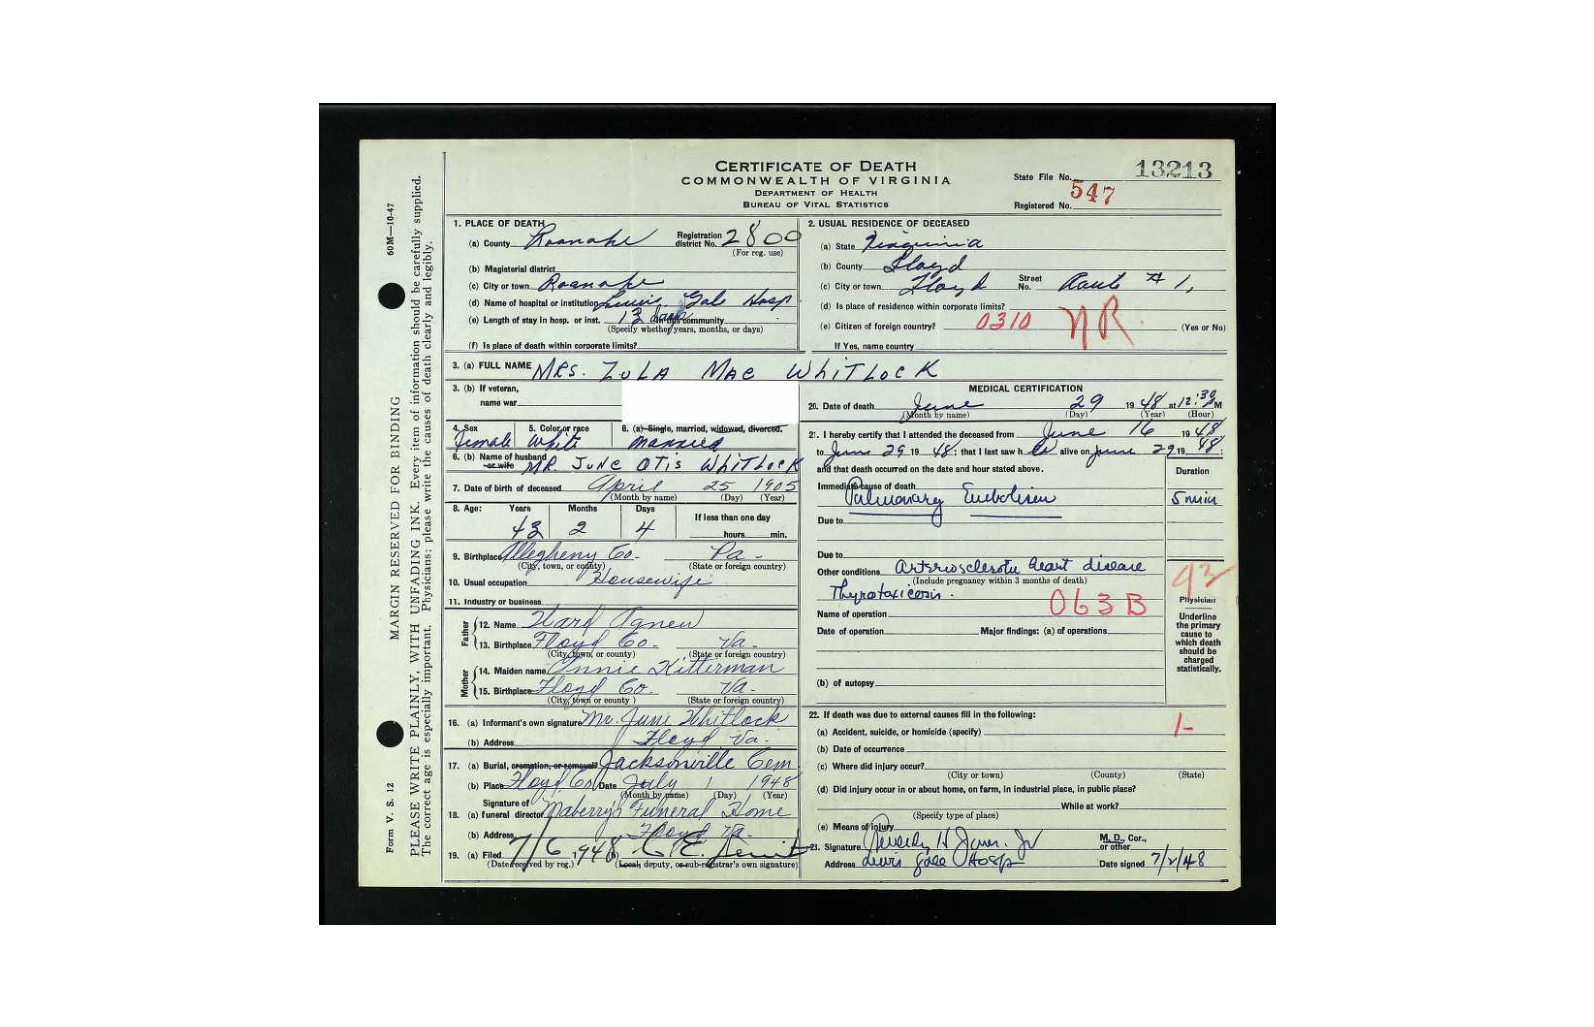 CERTIFICATE OF DEATH
COMMONWEALTH OF VIRGINIA
DEPARTMENT OF HEALTH
BUREAU OF VITAL STATISTICS
State File No. 13213
Registered No. 547
60M—10-47
MARGIN RESERVED FOR BINDING
Form V. S. 12
PLEASE WRITE PLAINLY, WITH UNFADING INK. Every item of information should be carefully supplied.
The correct age is especially important. Physicians: please write the causes of death clearly and legibly.
1. PLACE OF DEATH
(a) County Roanoke Registration district No. 2800
(For reg. use)
(b) Magisterial district
(c) City or town Roanoke
(d) Name of hospital or institution Lewis Gale Hosp
(e) Length of stay in hosp. or inst. 13 days In this community
(Specify whether years, months, or days)
(f) Is place of death within corporate limits?
2. USUAL RESIDENCE OF DECEASED
(a) State Virginia
(b) County Floyd
(c) City or town Floyd Street No. Route #1,
(d) Is place of residence within corporate limits?
(e) Citizen of foreign country? 0310 NR. (Yes or No)
If Yes, name country
3. (a) FULL NAME MRS. ZULA MAE WHITLOCK
3. (b) If veteran,
name war
4. Sex 5. Color or race 6. (a) Single, married, widowed, divorced.
Female White Married
6. (b) Name of husband or wife MR JUNE OTIS WHITLOCK
7. Date of birth of deceased April 25 1905
(Month by name) (Day) (Year)
8. Age: Years Months Days If less than one day
43 2 4 hours min.
9. Birthplace Allegheny Co. Pa.
(City, town, or county) (State or foreign country)
10. Usual occupation Housewife
11. Industry or business
Father
12. Name Ward Agnew
13. Birthplace Floyd Co. Va.
(City, town, or county) (State or foreign country)
Mother
14. Maiden name Annie Kitterman
15. Birthplace Floyd Co. Va.
(City, town or county) (State or foreign country)
16. (a) Informant's own signature Mr. June Whitlock
(b) Address Floyd Va.
17. (a) Burial, cremation, or removal? Jacksonville Cem
(b) Place Floyd Co Date July 1 1948
(Month by name) (Day) (Year)
18. (a) Signature of funeral director Maberry's Funeral Home
(b) Address Floyd Va.
19. (a) Filed 7/6 1948 (b) C. E.
(Date received by reg.) (Local, deputy, or sub-registrar's own signature)
MEDICAL CERTIFICATION
20. Date of death June 29 1948 at 12:30 M
(Month by name) (Day) (Year) (Hour)
21. I hereby certify that I attended the deceased from June 16 1948
to June 29 1948; that I last saw her alive on June 29 1948;
and that death occurred on the date and hour stated above. Duration
Immediate cause of death
Pulmonary Embolism 5 min
Due to
Due to
Other conditions Arteriosclerotic heart disease
(Include pregnancy within 3 months of death)
Thyrotoxicosis.
Name of operation 063B
Date of operation Major findings: (a) of operations
(b) of autopsy
93
Physician
Underline
the primary
cause to
which death
should be
charged
statistically.
22. If death was due to external causes fill in the following:
(a) Accident, suicide, or homicide (specify) 1-
(b) Date of occurrence
(c) Where did injury occur?
(City or town) (County) (State)
(d) Did injury occur in or about home, on farm, in industrial place, in public place?
While at work?
(Specify type of place)
(e) Means of injury
23. Signature Beverley H Jones, Jr M. D., Cor., or other
Address Lewis Gale Hosp Date signed 7/2/48